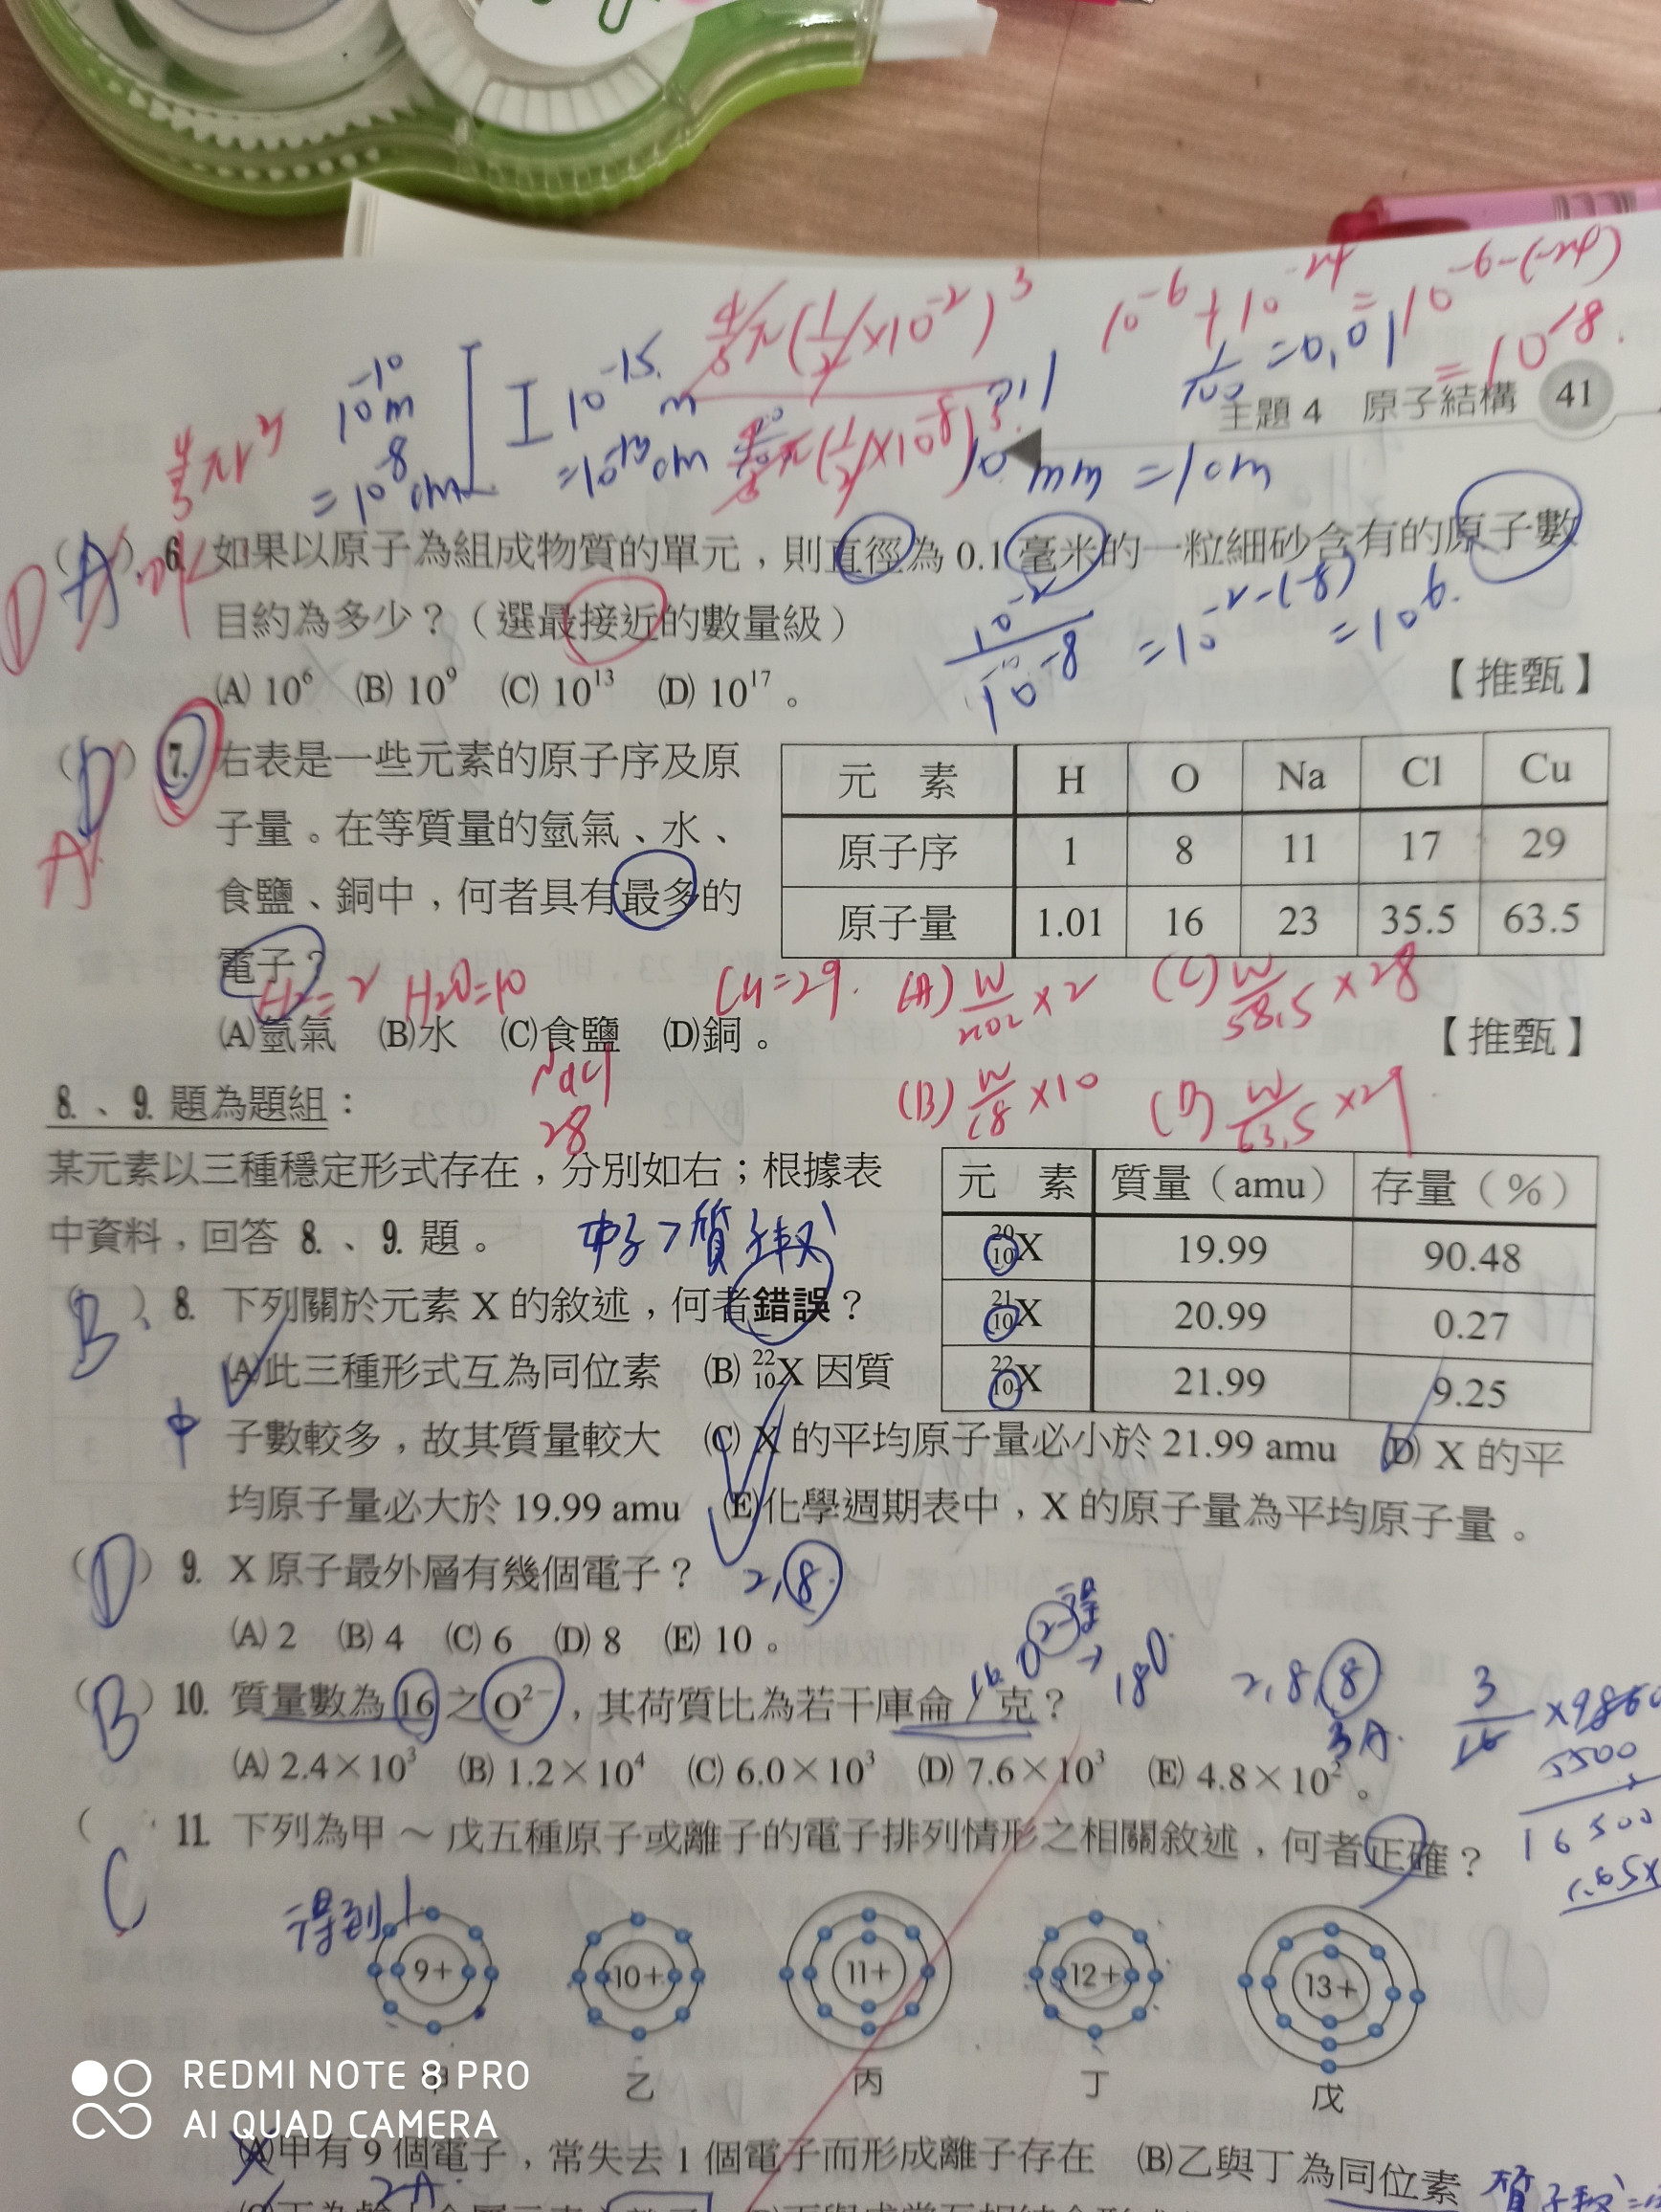 4/3πr³
10⁻¹⁰m
=10⁻⁸cm
10⁻¹⁵m
=10⁻¹³cm
4/3π(1/2×10⁻²)³
4/3π(1/2×10⁻⁸)³
10⁻⁶÷10⁻²⁴=10⁻⁶⁻⁽⁻²⁴⁾
=10¹⁸
1/100=0.01
主題 4 原子結構 41
10mm=1cm
D
(A) 6. 如果以原子為組成物質的單元，則直徑為 0.1 毫米的一粒細砂含有的原子數
目約為多少？（選最接近的數量級）
10⁻²/10⁻⁸=10⁻²⁻⁽⁻⁸⁾=10⁶
(A) 10⁶ (B) 10⁹ (C) 10¹³ (D) 10¹⁷。 【推甄】
(D) 7. 右表是一些元素的原子序及原
子量。在等質量的氫氣、水、
食鹽、銅中，何者具有最多的
電子？
A
元 素 H O Na Cl Cu
原子序 1 8 11 17 29
原子量 1.01 16 23 35.5 63.5
H₂=2 H₂O=10 Cu=29. (A) W/2.02×2 (C) W/58.5×28
(A)氫氣 (B)水 (C)食鹽 (D)銅。 【推甄】
NaCl
28
(B) W/18×10 (D) W/63.5×29
8.、9. 題為題組：
某元素以三種穩定形式存在，分別如右；根據表
中資料，回答 8.、9. 題。
中子>質子數
元 素 質量（amu） 存量（%）
²⁰₁₀X 19.99 90.48
²¹₁₀X 20.99 0.27
²²₁₀X 21.99 9.25
(B) 8. 下列關於元素 X 的敘述，何者錯誤？
(A)此三種形式互為同位素 (B) ²²₁₀X 因質
中
子數較多，故其質量較大 (C) X 的平均原子量必小於 21.99 amu (D) X 的平
均原子量必大於 19.99 amu (E)化學週期表中，X 的原子量為平均原子量。
(D) 9. X 原子最外層有幾個電子？ 2,8
(A) 2 (B) 4 (C) 6 (D) 8 (E) 10。
(B) 10. 質量數為 16 之 O²⁻，其荷質比為若干庫侖／克？
2,8,8
3A.
(A) 2.4×10³ (B) 1.2×10⁴ (C) 6.0×10³ (D) 7.6×10³ (E) 4.8×10²。
16500
( C 11. 下列為甲～戊五種原子或離子的電子排列情形之相關敘述，何者正確？
得到1
9+ 10+ 11+ 12+ 13+
甲 乙 丙 丁 戊
REDMI NOTE 8 PRO
AI QUAD CAMERA
(A)甲有 9 個電子，常失去 1 個電子而形成離子存在 (B)乙與丁為同位素
2A
質子數